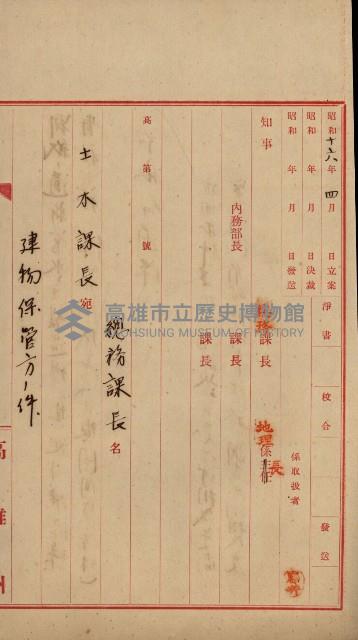 昭和十六年 四月 日立案
昭和 年 月 日決裁
昭和 年 月 日發送
淨書
校合
發送
知事
內務部長
總務課長
課長
課長
地理係長
主任
係取扱者
高 第 號
總務課長名
土木課長宛
建物保管方ノ件
高雄州
高雄市立歷史博物館
KAOHSIUNG MUSEUM OF HISTORY